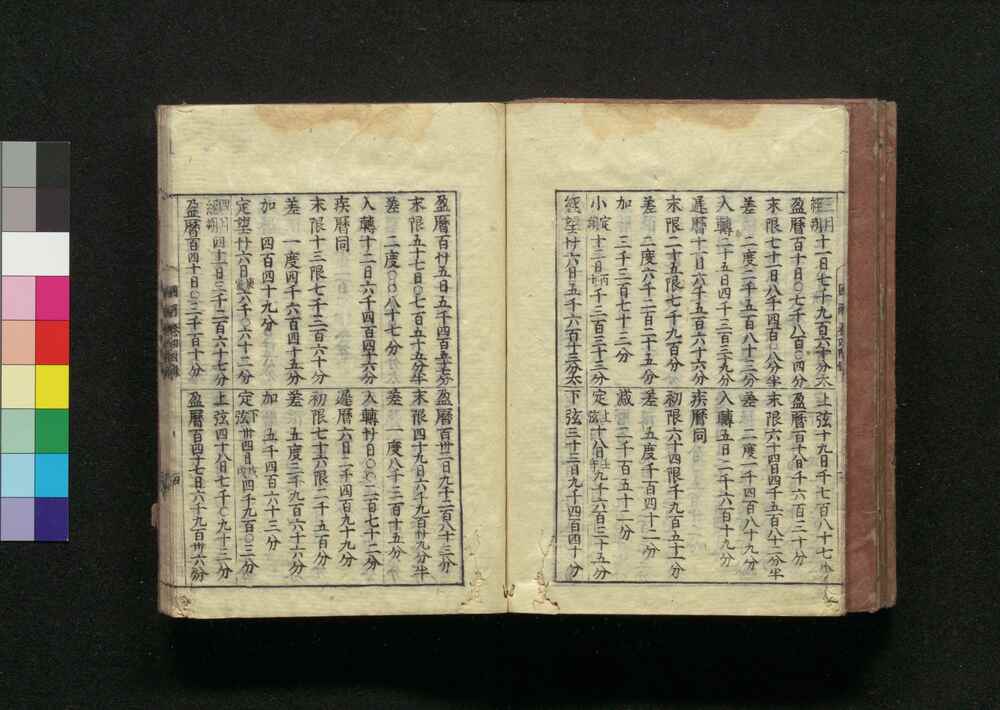 三月經朔十一日七千九百六十分太 上弦十九日千七百八十七分
盈曆百十日○七千八百○四分 盈曆百十八日千六百三十分
末限七十一日八千四百○八分半 末限六十四日四千五百八十二分半
差 二度二千五百八十三分 差 二度一千四百八十九分
入轉二十五日四千三百三十九分 入轉五日二千六百十九分
遲曆十一日六千五百六十六分 疾曆同
末限二十五限七千九百分 初限六十四限千九百五十一分
差 二度六千二百二十五分 差 五度千百四十二分
加 三千三百七十三分 減 二千百五十二分
小 定朔十二日丙千三百三十三分 定上弦十八日九千六百三十五分
經望廿六日五千六百十三分太 下弦三十三日九千四百四十分
盈曆百廿五日五千四百五十七分 盈曆百卅二日九千二百八十三分
末限五十七日○七百五十五分半 末限四十九日六千九百廿九分半
差 二度○○八十七分 差 一度八千二百十五分
入轉十二日六千四百四十六分 入轉廿日○○二百七十二分
疾曆同 遲曆六日二千四百九十九分
末限十三限七千二百六十分 初限七十六限二千五百分
差 一度四千六百四十五分 差 五度三千九百六十六分
加 四百四十九分 加 五千四百六十三分
定望廿六日六千○六十二分 定下弦卅四日四千九百○三分
四月經朔四十一日三千二百六十七分 上弦四十八日七千○九十三分
盈曆百四十日○三千一百十分 盈曆百四十七日六千九百卅六分